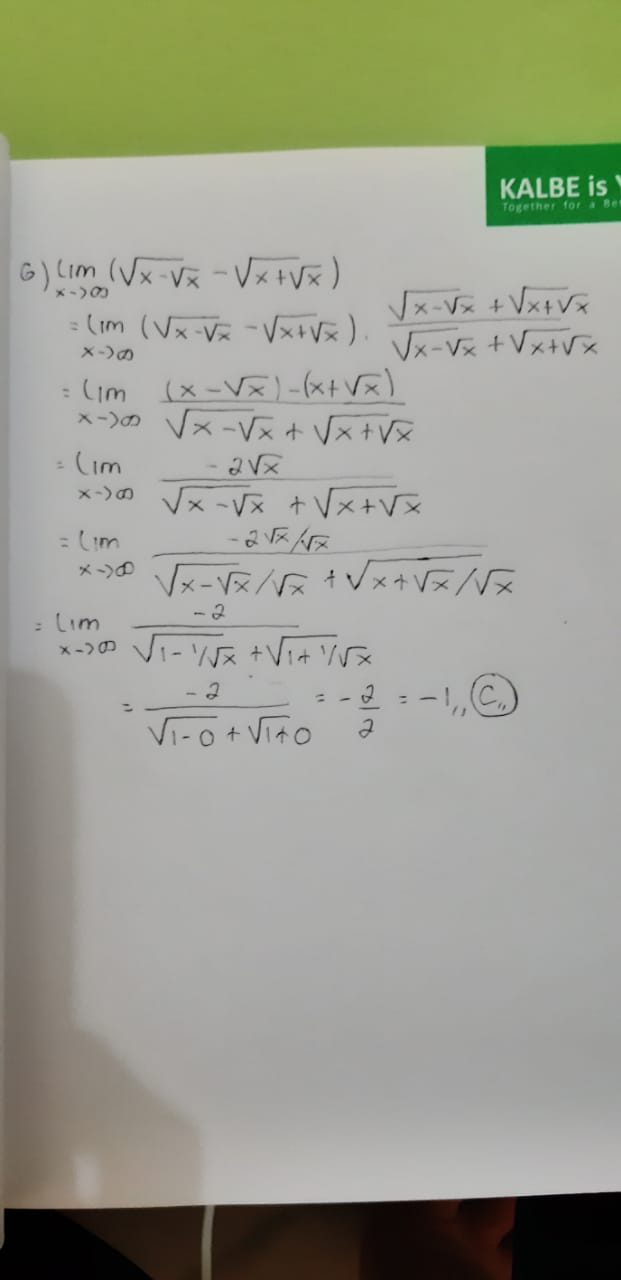 KALBE is
Together for a Be
6) lim (√x-√x - √x+√x)
x->∞
= lim (√x-√x - √x+√x) . √x-√x + √x+√x / √x-√x + √x+√x
x->∞
= lim (x-√x)-(x+√x) / √x-√x + √x+√x
x->∞
= lim -2√x / √x-√x + √x+√x
x->∞
= lim -2√x/√x / √x-√x/√x + √x+√x/√x
x->∞
= lim -2 / √1-1/√x + √1+1/√x
x->∞
= -2 / √1-0 + √1+0 = -2/2 = -1,, C,,